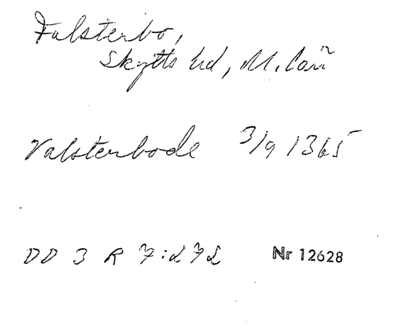 Falsterbo,
Skytts hd, M. län
Valsterbode 3/9 1365
DD 3 R 7:272 Nr 12628